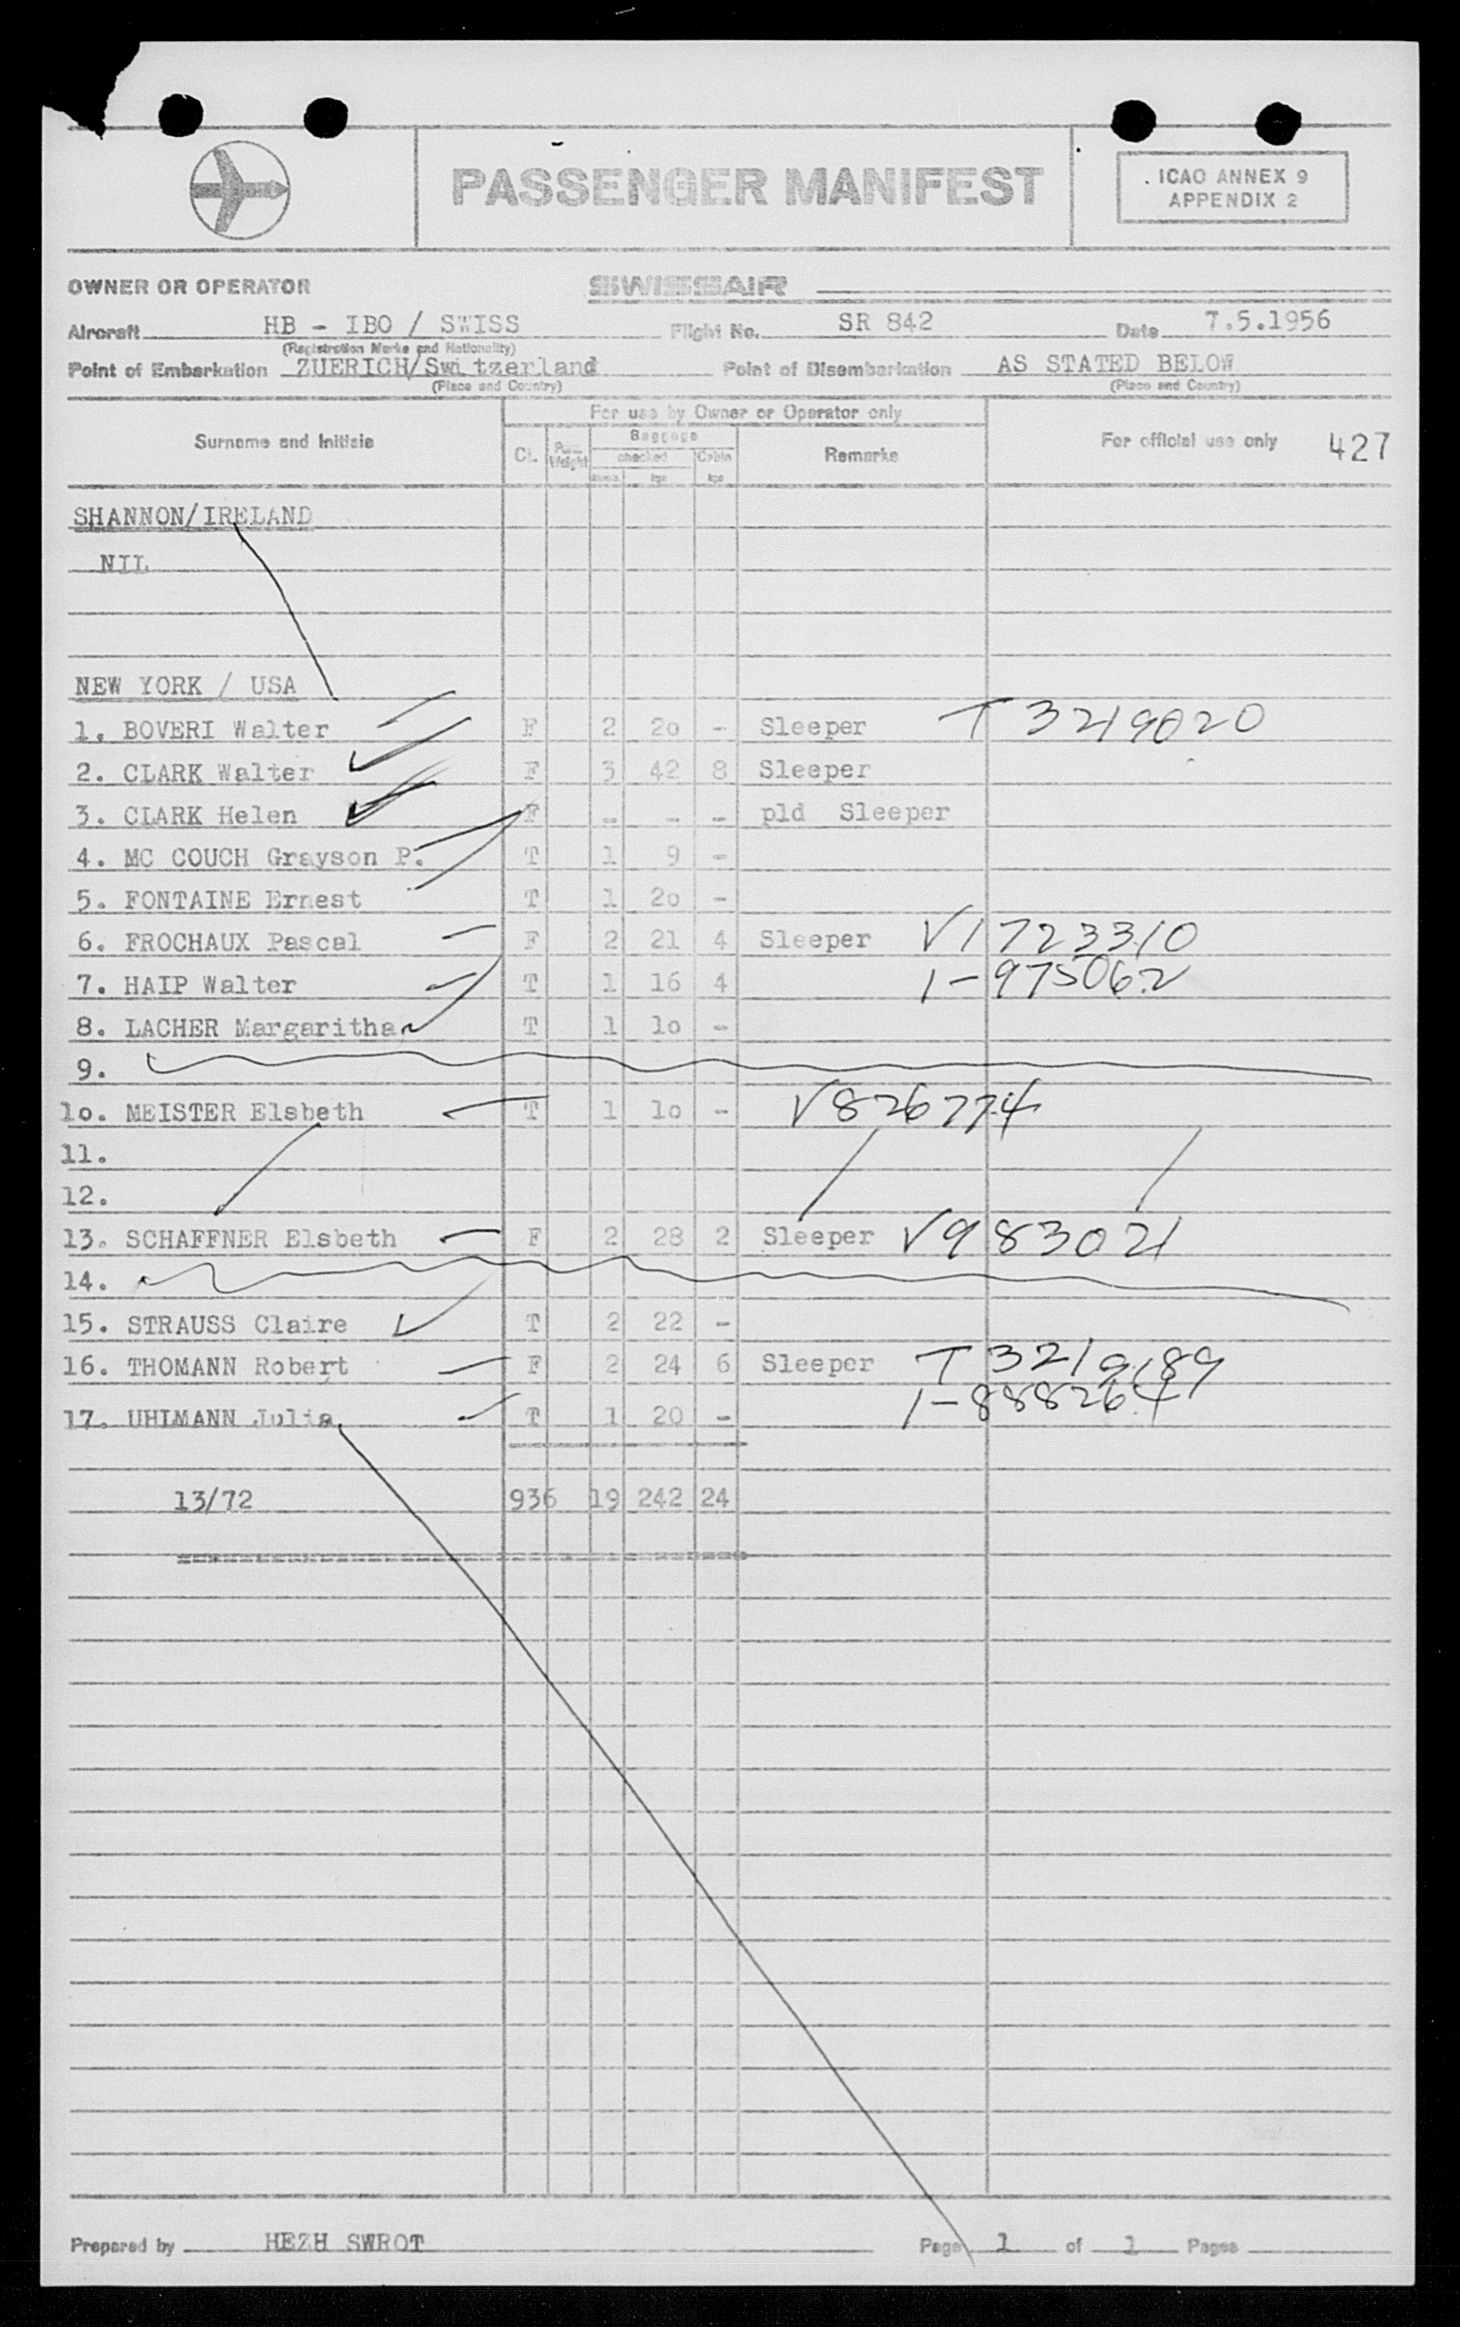 PASSENGER MANIFEST
ICAO ANNEX 9
APPENDIX 2
OWNER OR OPERATOR SWISSAIR
Aircraft HB - IBO / SWISS Flight No. SR 842 Date 7.5.1956
(Registration Marks and Nationality)
Point of Embarkation ZUERICH/Switzerland Point of Disembarkation AS STATED BELOW
(Place and Country) (Place and Country)
For use by Owner or Operator only
Surname and Initials Cl. Pass. Weight Baggage Remarks For official use only 427
checked Cabin
kgs kgs
SHANNON/IRELAND
NIL
NEW YORK / USA
1. BOVERI Walter F 2 2o - Sleeper T 3219020
2. CLARK Walter F 3 42 8 Sleeper
3. CLARK Helen F - - - pld Sleeper
4. MC COUCH Grayson P. T 1 9 -
5. FONTAINE Ernest T 1 2o -
6. FROCHAUX Pascal F 2 21 4 Sleeper V1723310
7. HAIP Walter T 1 16 4 1-975062
8. LACHER Margaritha T 1 1o -
9.
1o. MEISTER Elsbeth T 1 1o - V826774
11.
12.
13. SCHAFFNER Elsbeth F 2 28 2 Sleeper V983021
14.
15. STRAUSS Claire T 2 22 -
16. THOMANN Robert F 2 24 6 Sleeper T3219189
17. UHLMANN Julia T 1 20 - 1-888264
13/72 936 19 242 24
Prepared by HEZH SWROT Page 1 of 1 Pages